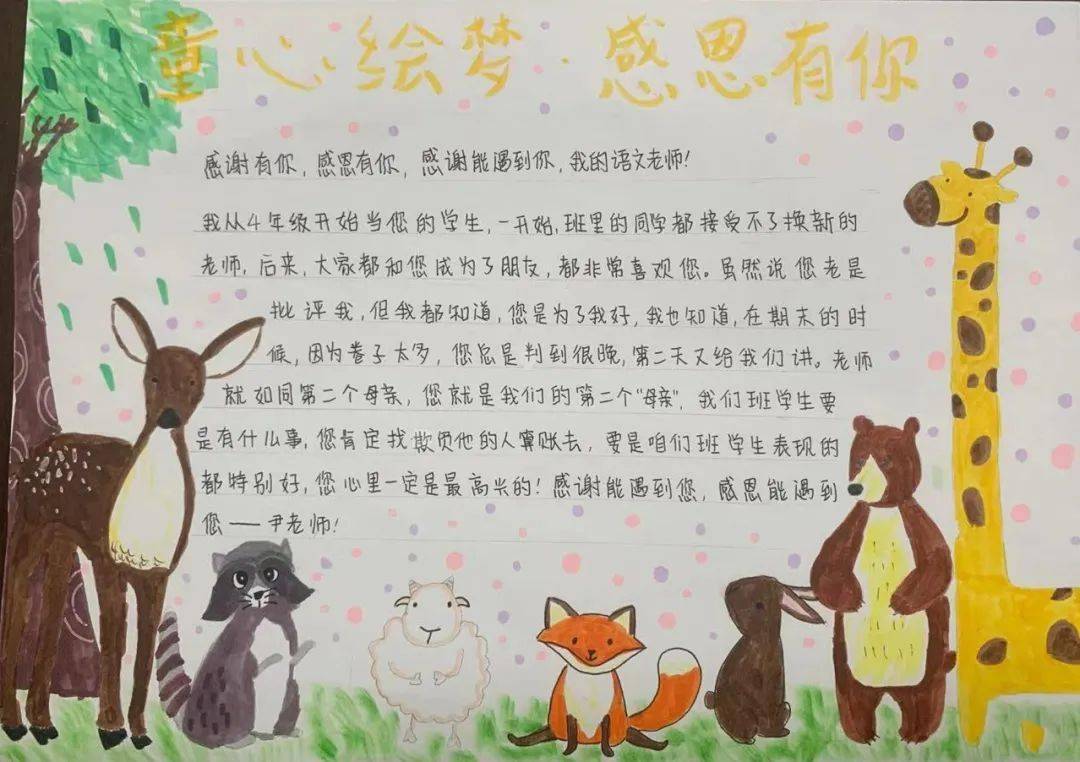 童心绘梦·感恩有你
感谢有你，感恩有你，感谢能遇到你，我的语文老师！
我从4年级开始当您的学生，一开始，班里的同学都接受不了换新的
老师，后来，大家都和您成为了朋友，都非常喜欢您。虽然说您老是
批评我，但我都知道，您是为了我好，我也知道，在期末的时
候，因为卷子太多，您总是判到很晚，第二天又给我们讲。老师
就如同第二个母亲，您就是我们的第二个"母亲"，我们班学生要
是有什么事，您肯定找欺负他的人算账去，要是咱们班学生表现的
都特别好，您心里一定是最高兴的！感谢能遇到您，感恩能遇到
您——尹老师！